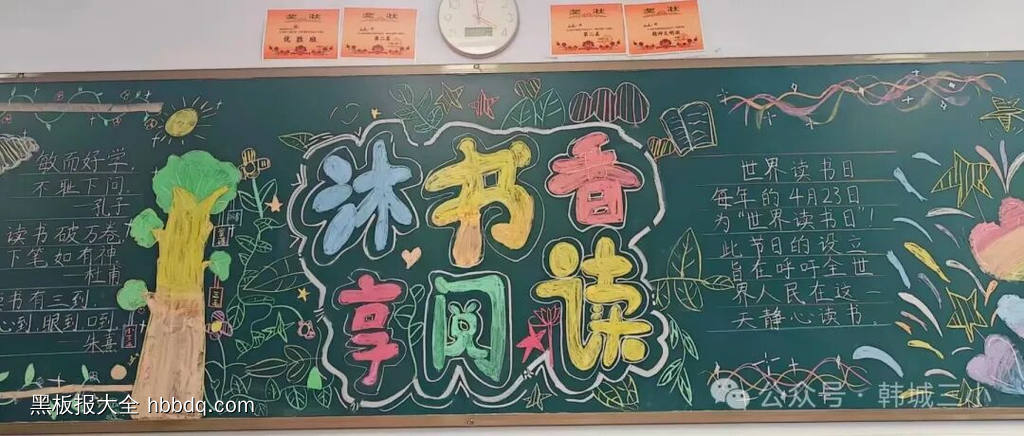 奖状
优胜班
奖状
第二名
奖状
第二名
奖状
敏而好学,
不耻下问。
—孔子
读书破万卷
下笔如有神
—杜甫
书有三到,
心到.眼到.口到.
—朱熹
沐书香
享阅读
世界读书日
每年的4月23日
为“世界读书日”!
此节日的设立
旨在呼吁全世
界人民在这一
天静心读书。
黑板报大全 hbbdq.com
公众号·韩城三小